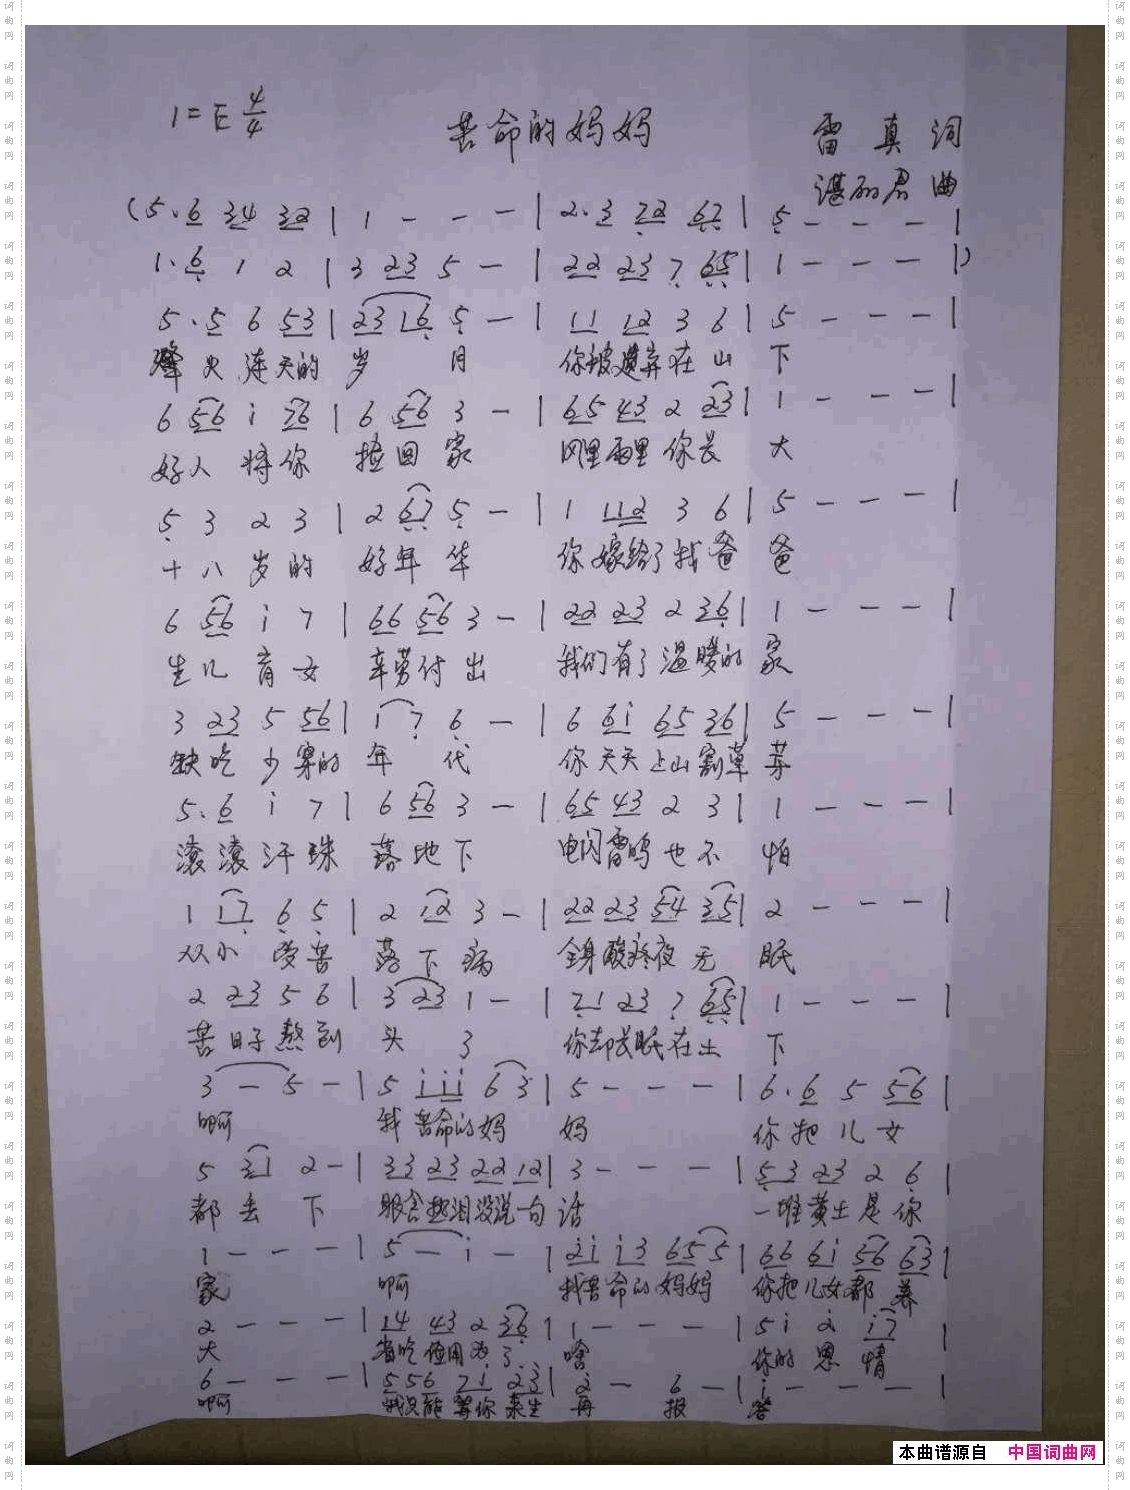 1=E 4/4
苦命的妈妈
雷真词
曲
(5.6 34 32 | 1 - - - | 2.3 72 67 | 5 - - - |
1.6 1 2 | 3 23 5 - | 22 23 7 65 | 1 - - - |)
5.5 6 53 | 23 16 5 - | 11 12 3 6 | 5 - - - |
烽火连天的岁月 你被遗弃在山下
6 56 i 76 | 6 56 3 - | 65 43 2 23 | 1 - - - |
好人将你捡回家 风里雨里你长大
5 3 2 3 | 2 67 5 - | 1 112 3 6 | 5 - - - |
十八岁的好年华 你嫁给了我爸爸
6 56 i 7 | 66 56 3 - | 22 23 2 36 | 1 - - - |
生儿育女辛劳付出 我们有了温暖的家
3 23 5 56 | 1 7 6 - | 6 6i 65 36 | 5 - - - |
缺吃少穿的年代 你天天上山割草茅
5.6 i 7 | 6 56 3 - | 65 43 2 3 | 1 - - - |
滚滚汗珠落地下 电闪雷鸣也不怕
1 17 6 5 | 2 12 3 - | 22 23 54 35 | 2 - - - |
从小受苦落下病 全身酸疼夜无眠
2 23 5 6 | 3 23 1 - | 71 23 7 65 | 1 - - - |
苦日子熬到头了 你却长眠在土下
3 - 5 - | 5 iii 6 3 | 5 - - - | 6.6 5 56 |
啊 我苦命的妈妈 你把儿女
5 31 2 - | 33 23 22 12 | 3 - - - | 53 23 2 6 |
都丢下 眼含热泪没说一句话 一堆黄土是你
1 - - - | 5 - i - | 2i i3 65 5 | 66 6i 56 63 |
家 啊 我苦命的妈妈 你把儿女都养
2 - - - | 14 43 2 36 | 1 - - - | 5 i 2 i7 |
大 省吃俭用为了啥 你的恩情
6 - - - | 5 56 71 23 | 2 - 6 - | i - - - |
啊 我只能等你来生再报答
本曲谱源自 中国词曲网
词曲网